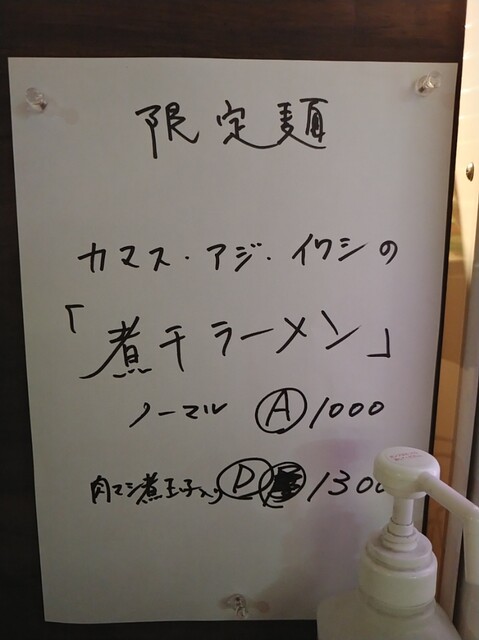 限定麺
カマス・アジ・イワシの
「煮干ラーメン」
ノーマル Ⓐ 1000
肉マシ煮玉子入り Ⓓ 1300